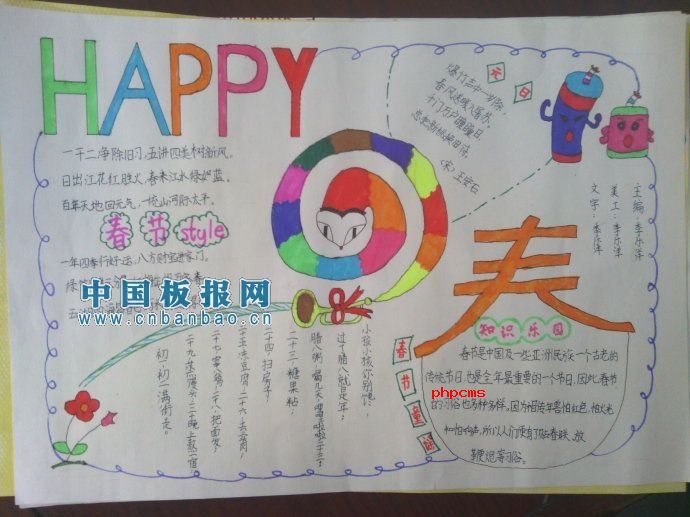 HAPPY
一干二净除旧习，五讲四美树新风。
日出江花红胜火，春来江水绿如蓝。
百年天地回元气，一统山河际太平。
春节style
一年四季行好运，八方财宝进家门。
中国板报网
www.cnbanbao.cn
元日
爆竹声中一岁除，
春风送暖入屠苏。
千门万户曈曈日，
总把新桃换旧符。
（宋）王安石
主编：李乐洋
美工：李乐洋
文字：李乐洋
春
知识乐园
春节是中国及一些亚洲民族一个古老的
传统节日，也是全年最重要的一个节日，因此春节
phpcms
的习俗也多种多样。因为相传年兽怕红色，怕火光
和怕响声，所以人们便有了贴春联、放
鞭炮等习俗。
春节童谣
小孩小孩你别馋，
过了腊八就是年；
腊八粥，喝几天，哩哩啦啦二十三；
二十三，糖果粘；
二十四，扫房子；
二十五，冻豆腐；二十六，去买肉；
二十七，宰公鸡；二十八，把面发；
二十九，蒸馒头；三十晚上熬一宿；
初一、初二满街走。